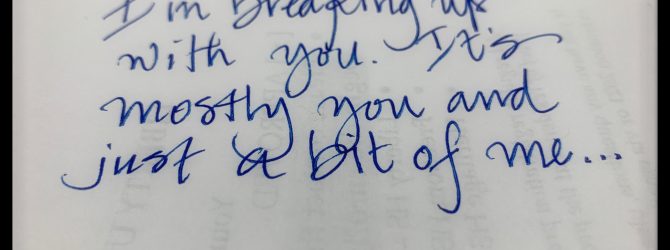 I'm breaking up
with you. It's
mostly you and
just a bit of me...